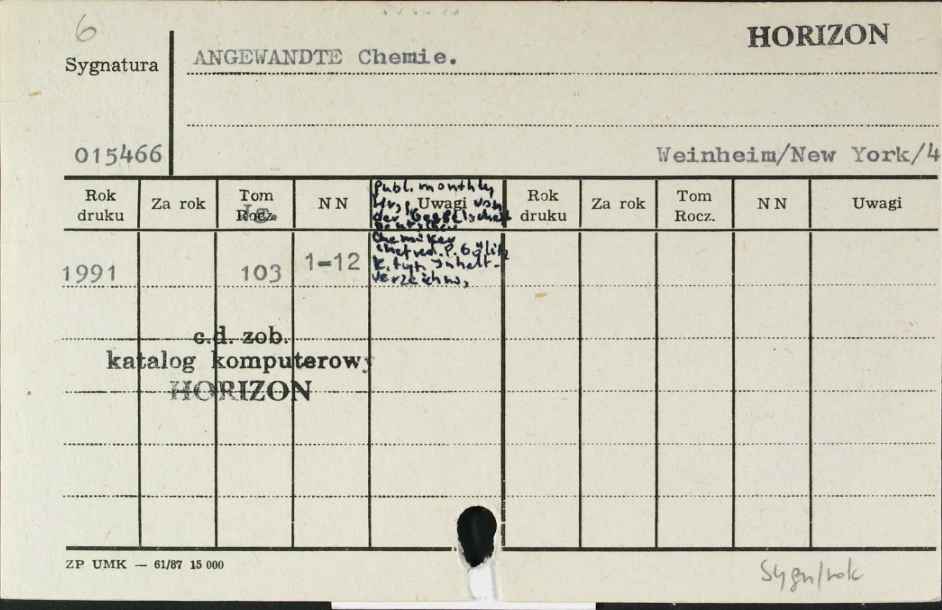 6
HORIZON
Sygnatura
ANGEWANDTE Chemie.
015466
Weinheim/New York/4
Rok druku Za rok Tom Rocz. NN Uwagi Rok druku Za rok Tom Rocz. NN Uwagi
publ. monthly
Hrsg. von
der Gesellschaft
Deutscher
Chemiker
Chefred. P. Gölitz
K. tyt. Inhalt-
verzeichnis
1991 103 1-12
c.d. zob.
katalog komputerowy
HORIZON
ZP UMK — 61/87 15 000
Sygn/rok